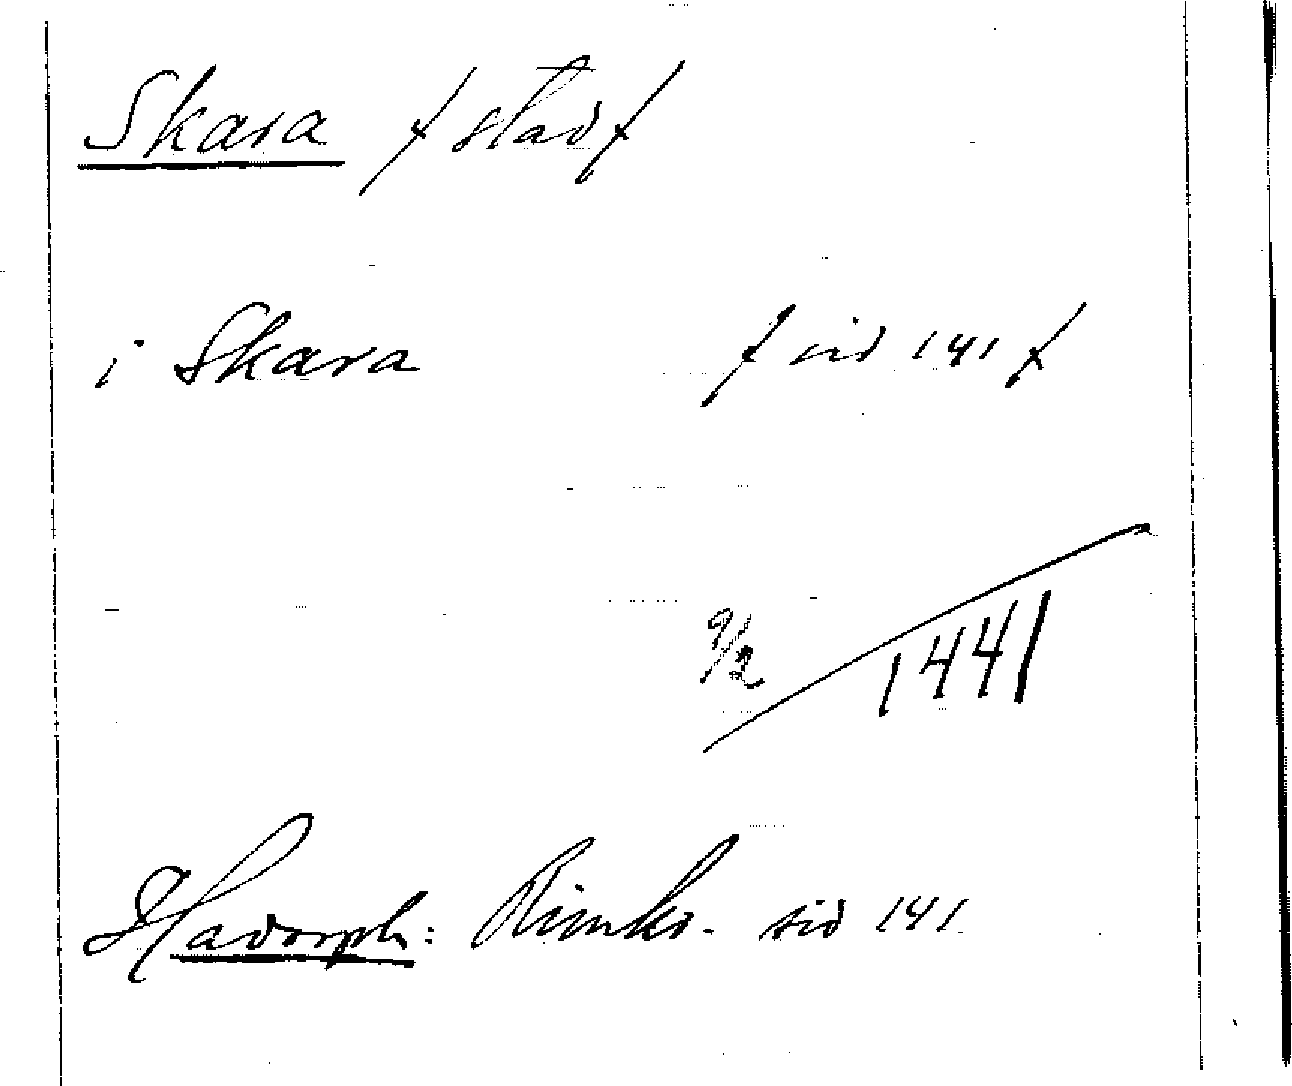 Skara / stad /
i Skara / sid 141 /
9/2 1441
Hadorph: Rimkr. sid 141